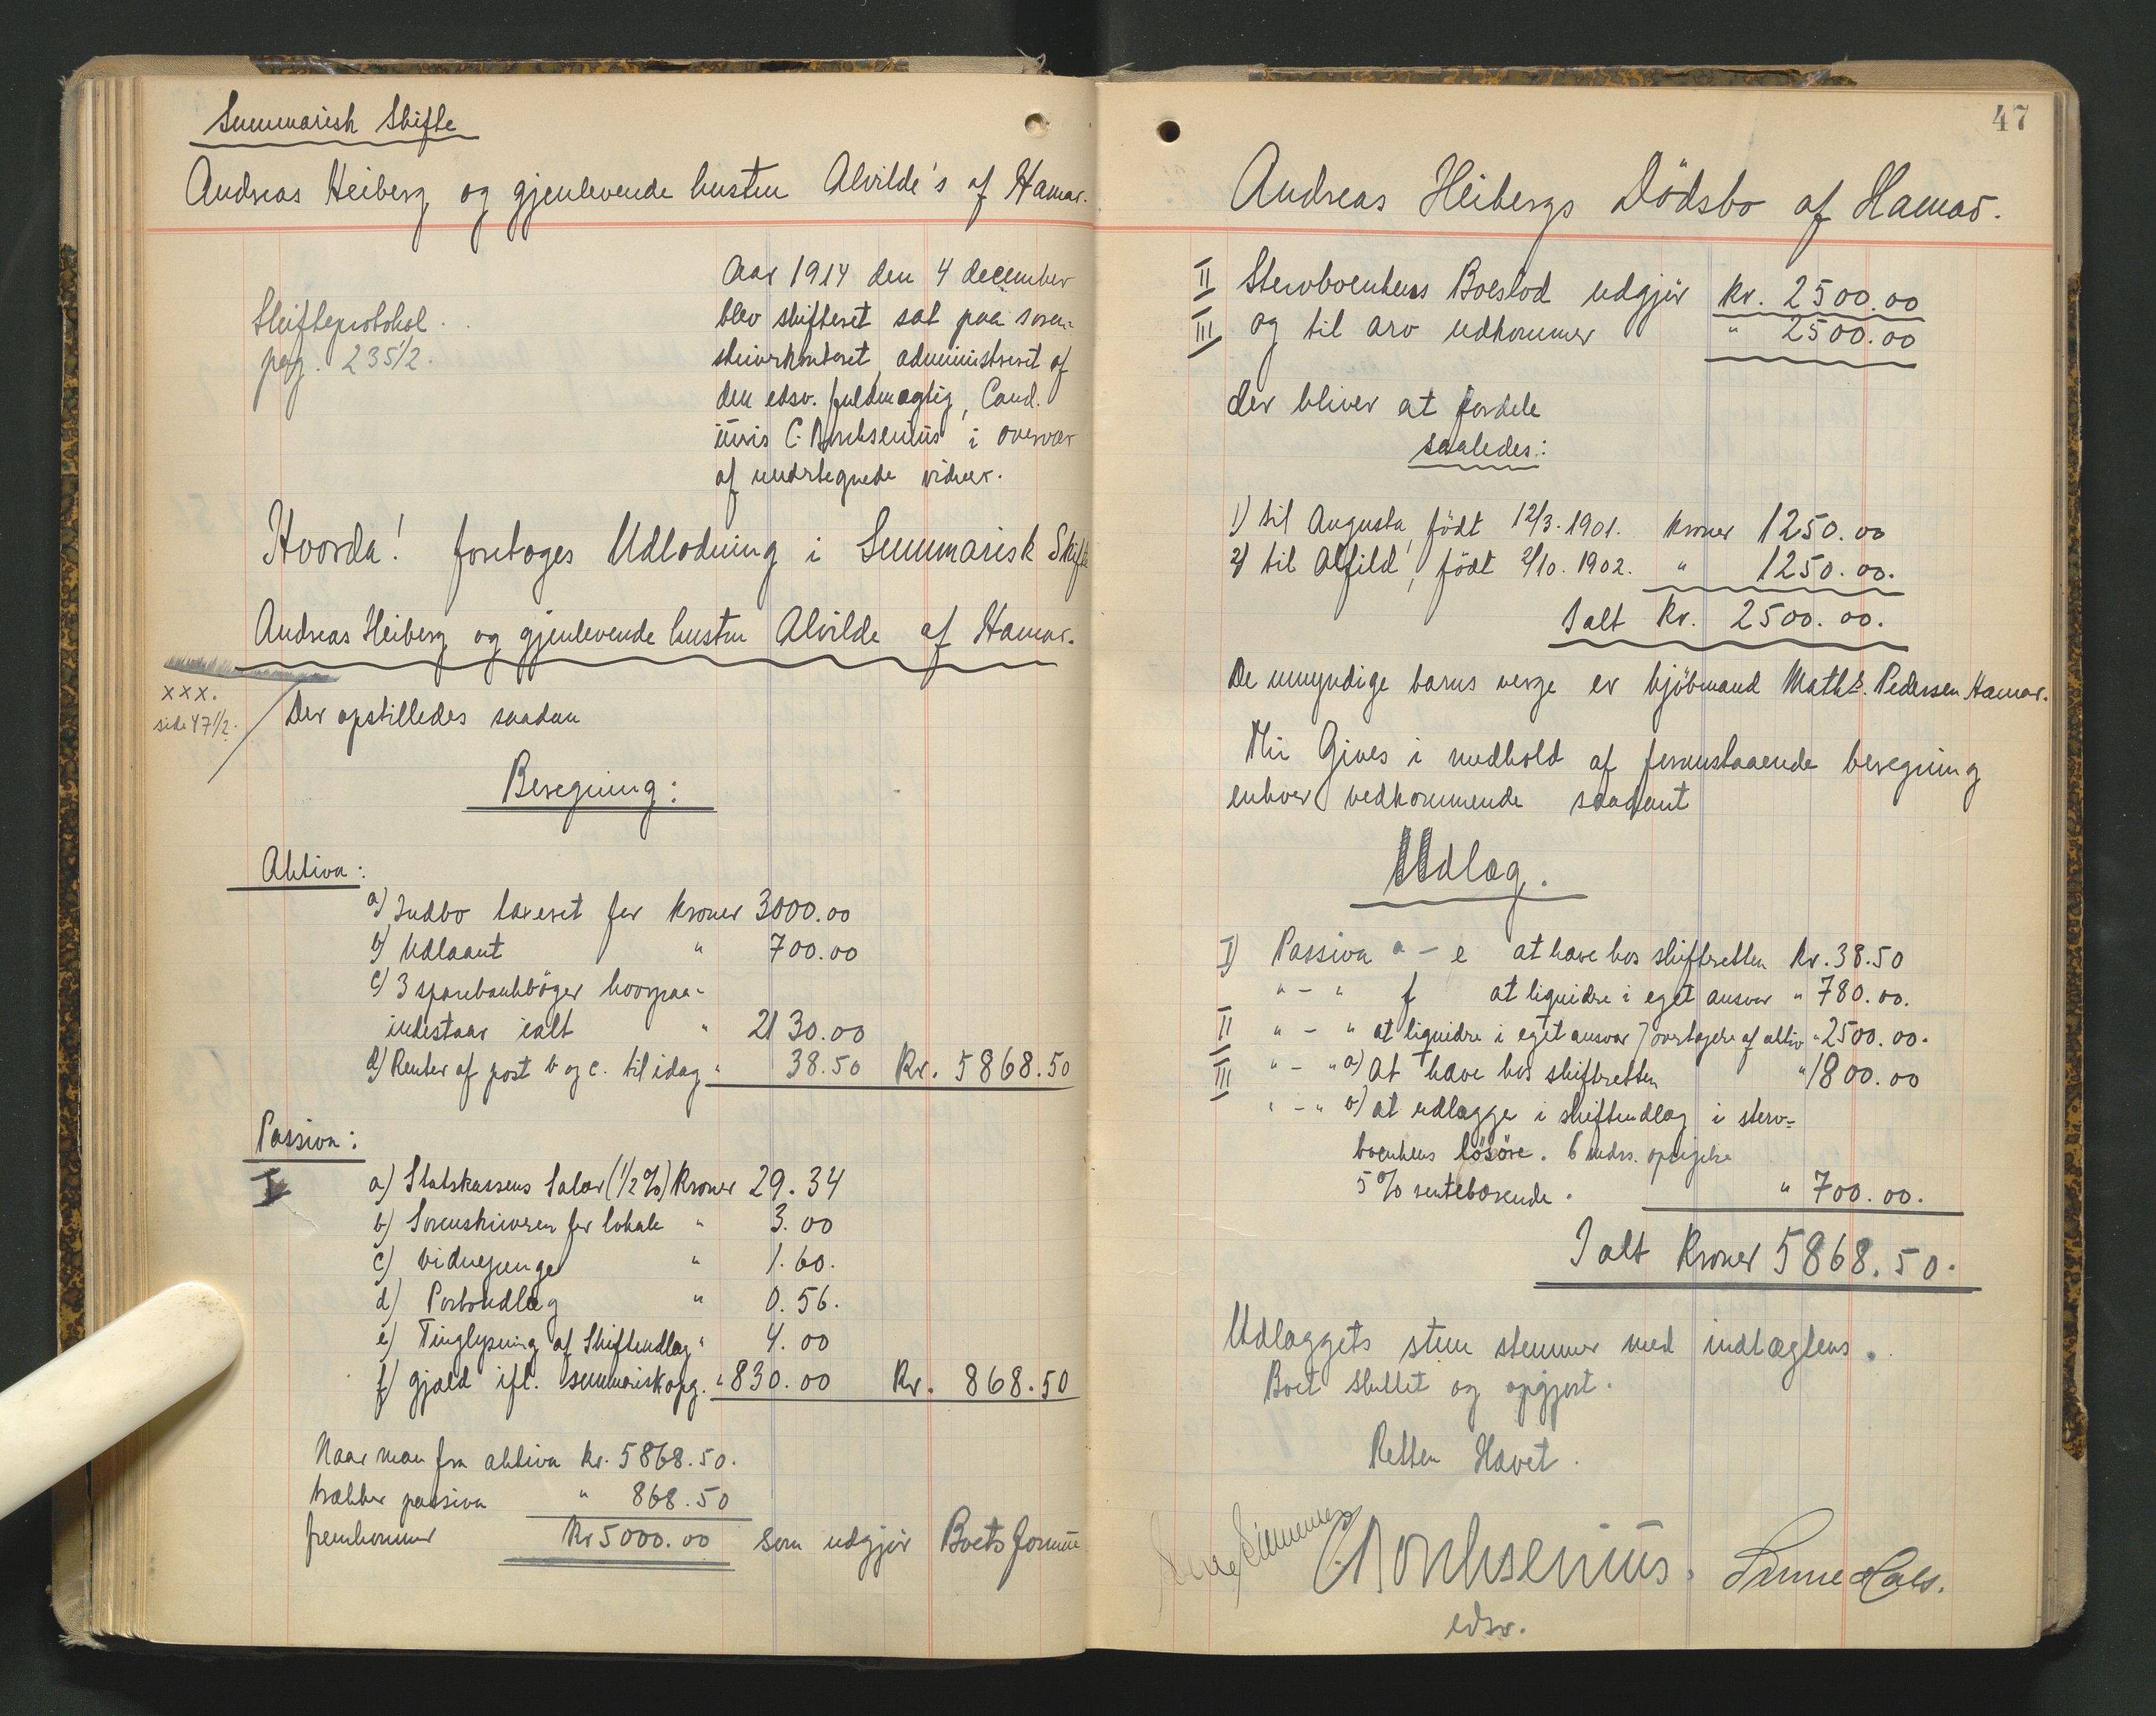 Summarisk Skifte
Andreas Heiberg og gjenlevende hustru Alvilde's af Hamar.
Skifteprotokol
pag. 235 1/2.
Aar 1914 den 4 december
blev skifteret sat paa soren-
skriverkontoret, administreret af
den edsv. fuldmægtig, Cand.
iuris C. Borchsenius i overvær
af undertegnede vidner.
Hvorda! foretoges Udlodning i Summarisk Skifte
Andreas Heiberg og gjenlevende hustru Alvilde af Hamar.
xxx.
side 47 1/2.
Der opstilledes saadan
Beregning:
Aktiva:
a) Indbo taxeret for kroner 3000.00
b) Udlaant " 700.00
c) 3 sparebankbøger hvorpaa-
indestaar ialt " 2130.00
d) Renter af post b og c. til idag " 38.50 Kr. 5868.50
Passiva:
I a) Statskassens Salær (1/2%) Kroner 29.34
b) Sorenskriveren for lokale " 3.00
c) vidnepenge " 1.60.
d) Portoudlæg " 0.56.
e) Tinglysning af Skifteudlæg " 4.00
f) gjæld ifl. summarisk opg. " 830.00 Kr. 868.50
Naar man fra aktiva kr. 5868.50.
trækker passiva " 868.50
fremkommer Kr 5000.00 som udgjør Boets formue
47
Andreas Heibergs Dödsbo af Hamar.
II Stervboenkens Boeslod udgjør kr. 2500.00
III og til arv udkommer " 2500.00
der bliver at fordele
saaledes:
1) til Augusta, födt 12/3. 1901. kroner 1250.00
2) til Alfild, födt 2/10. 1902. " 1250.00.
Ialt kr. 2500.00.
De umyndige barns verge er kjöbmand Maths. Pedersen Hamar.
Thi Gives i medhold af foranstaaende beregning
enhver vedkommende saadant
Udlæg.
I) Passiva a - e at have hos skifteretten Kr. 38.50
" - " f at liquidre i eget ansvar " 780.00.
II " - " at liquidre i eget ansvar overtagere af aktiv " 2500.00.
III " - " a) At have hos skifteretten " 1800.00
" - " b) at udlægge i skifteudlæg i sterv-
boenkens lösöre. 6 mdrs. opsigelse
5% rentebærende. " 700.00.
Ialt Kroner 5868.50.
Udlæggets sum stemmer med indtægtens.
Boet sluttet og opgjort.
Retten Hævet.
CBorchsenius.
edsv.